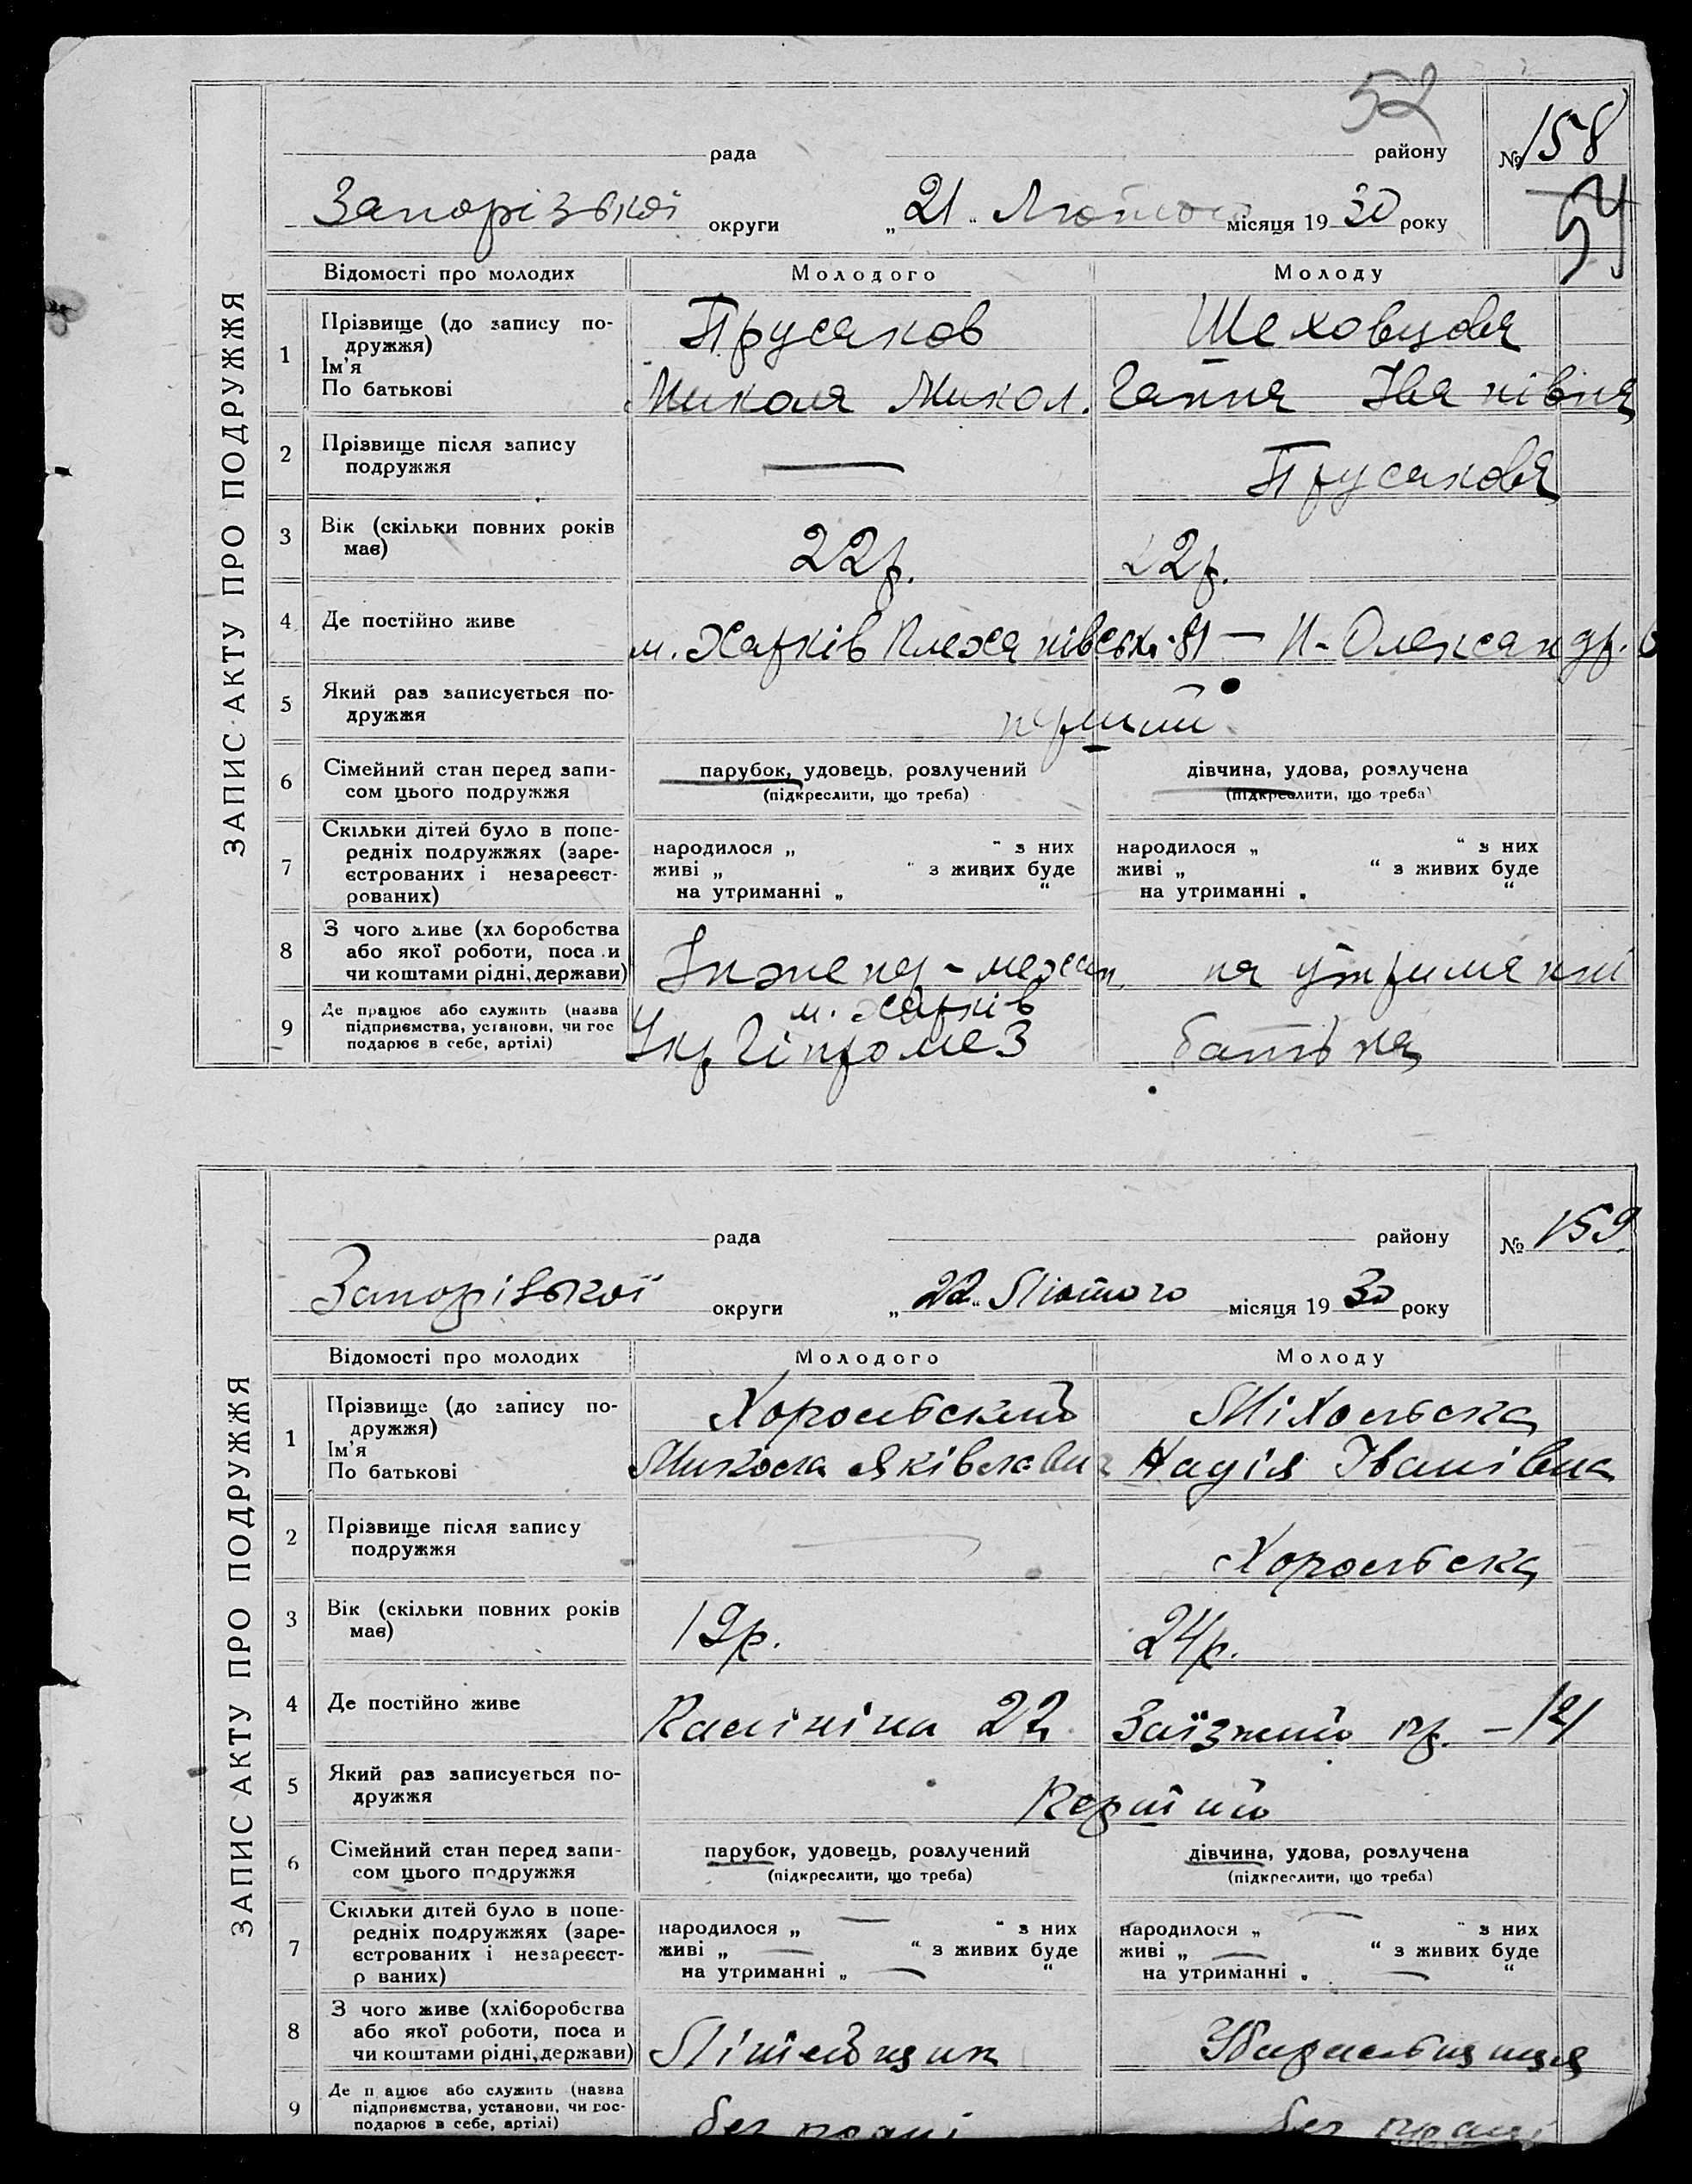 52
ЗАПИС АКТУ ПРО ПОДРУЖЖЯ
рада району № 158
54
Запорізької округи „21“ Лютого місяця 1930 року
Відомості про молодих Молодого Молоду
1 Прізвище (до запису по-
дружжя)
Ім'я
По батькові
Прусаков Шеховцова
Микола Микол. Ганна Іванівна
2 Прізвище після запису
подружжя
— Прусакова
3 Вік (скільки повних років
має)
22р. 22р.
4 Де постійно живе
м. Харків Плеханівськ. 81 — П-Олександр. 6
5 Який раз записується по-
дружжя
перший
6 Сімейний стан перед запи-
сом цього подружжя
парубок, удовець, розлучений дівчина, удова, розлучена
(підкреслити, що треба) (підкреслити, що треба)
7 Скільки дітей було в попе-
редніх подружжях (заре-
єстрованих і незареєст-
рованих)
народилося „ “ з них народилося „ “ з них
живі „ “ з живих буде живі „ “ з живих буде
на утриманні „ “ на утриманні „ “
8 З чого живе (хл боробства
або якої роботи, поса и
чи коштами рідні, держави)
Інженер-механ. на утриманні
9 Де працює або служить (назва
підприємства, установи, чи гос
подарює в себе, артілі)
м. Харків
УкрГіпромез батька
ЗАПИС АКТУ ПРО ПОДРУЖЖЯ
рада району № 159
Запорізької округи „22“ Лютого місяця 1930 року
Відомості про молодих Молодого Молоду
1 Прізвище (до запису по-
дружжя)
Ім'я
По батькові
Хорольський Міхольська
Микола Яківлевич Надія Іванівна
2 Прізвище після запису
подружжя
— Хорольська
3 Вік (скільки повних років
має)
19р. 24р.
4 Де постійно живе
Калініна 22 Заїзжий пр. – 121
5 Який раз записується по-
дружжя
Перший
6 Сімейний стан перед запи-
сом цього подружжя
парубок, удовець, розлучений дівчина, удова, розлучена
(підкреслити, що треба) (підкреслити, що треба)
7 Скільки дітей було в попе-
редніх подружжях (заре-
єстрованих і незареєст-
р ваних)
народилося „ — “ з них народилося „ — “ з них
живі „ — “ з живих буде живі „ — “ з живих буде
на утриманні „ — “ на утриманні „ — “
8 З чого живе (хліборобства
або якої роботи, поса и
чи коштами рідні, держави)
Літейщик Збиральщиця
9 Де п ацює або служить (назва
підприємства, установи, чи гос-
подарює в себе, артілі)
без праці без праці